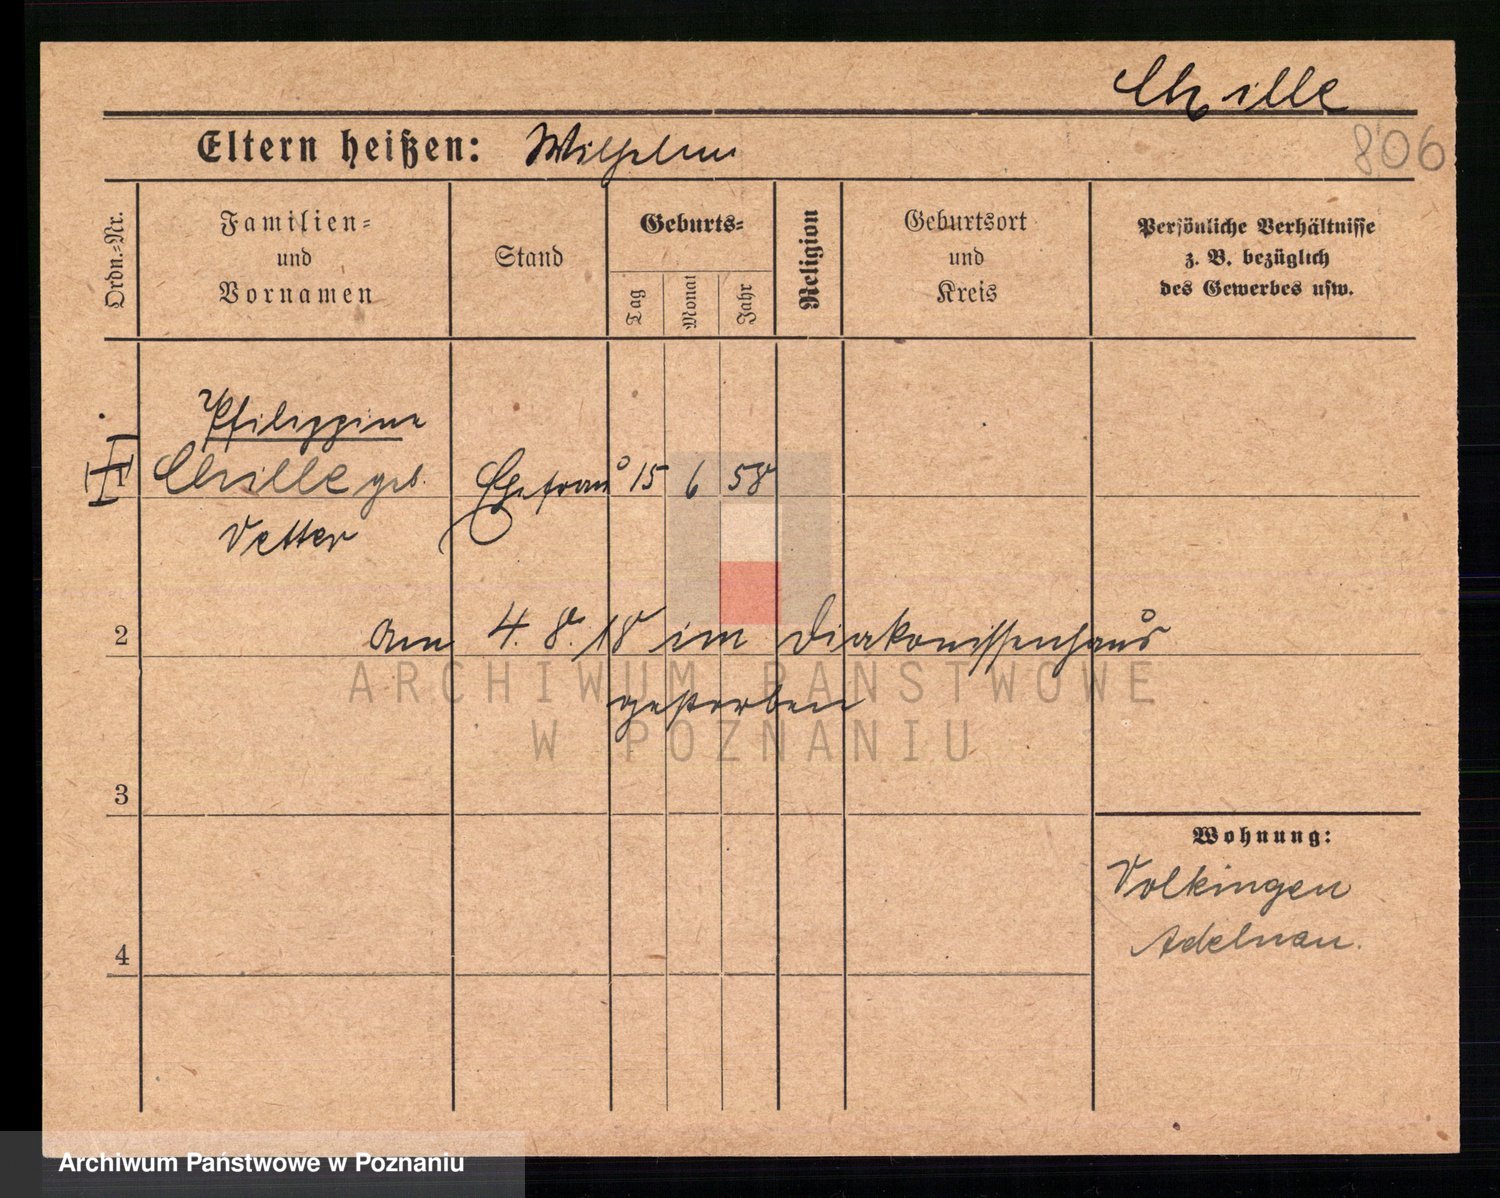 Chille
Eltern heißen: Wilhelm
806
Ordn.-Nr.
Familien-
und
Vornamen
Stand
Geburts-
Tag
Monat
Jahr
Religion
Geburtsort
und
Kreis
Persönliche Verhältnisse
z. B. bezüglich
des Gewerbes usw.
Philippine
Chille geb. Ehefrau 15 6 58
Vetter
2
am 4. 8. 18 im Diakonissenhaus
ARCHIWUM PAŃSTWOWE
gestorben
W POZNANIU
3
Wohnung:
Volkingen
Adelnau.
4
Archiwum Państwowe w Poznaniu